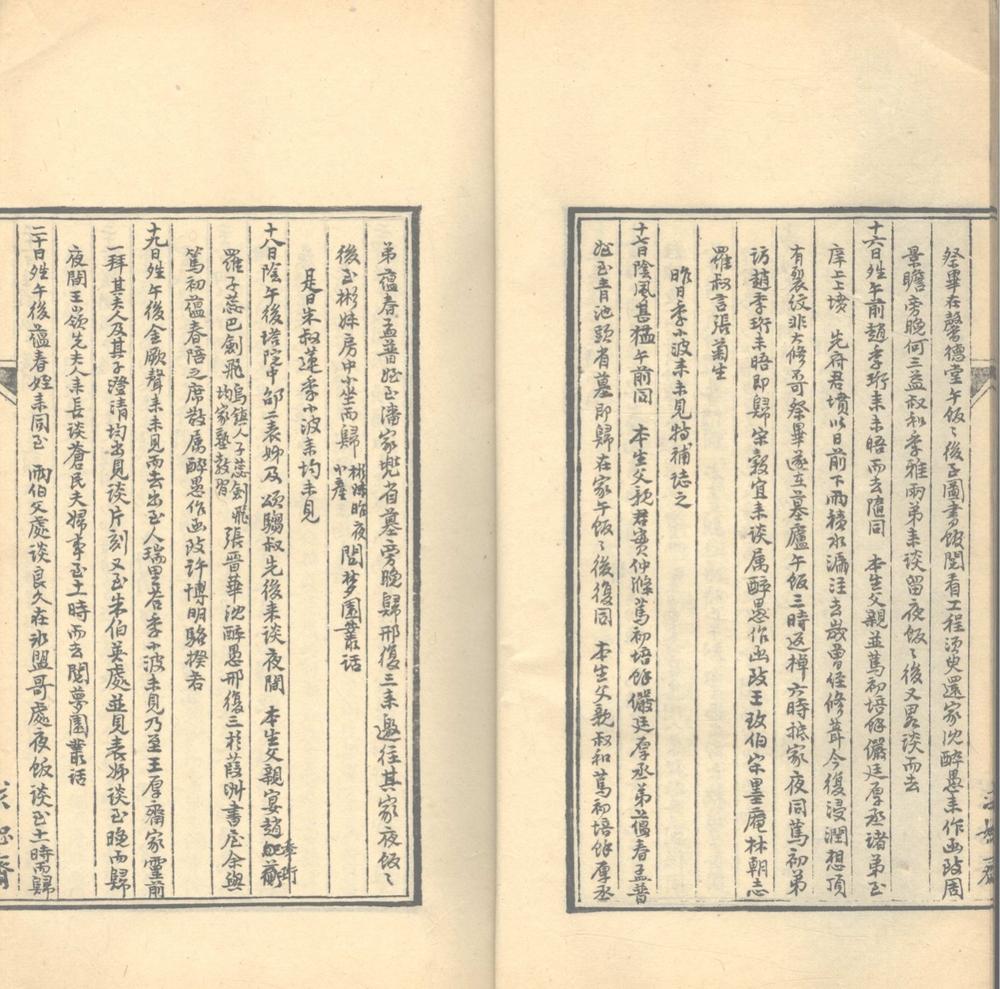 祭畢在馨德堂午飯〻後子圖書館閱看工程須臾還家沈醉愚來作函致周
景瞻旁晚何三益叔和季雅兩弟來談留夜飯〻後又畧談而去
十六日姓午前趙季珩來未晤而去隨同　本生父親並篤初培餘儼廷厚丞諸弟至
庠上上墳　先府君壙以日前下雨積水漏注去歲曾經修葺今復浸潤想頂
有裂紋非大修不可祭畢遂在墓廬午飯三時返棹六時抵家夜同篤初弟
訪趙季珩未晤即歸宋毅宜來談属醉愚作函致王玫伯宋墨庵林朝志
羅叔言張菊生
昨日季小波來未見特補誌之
十七日陰風甚猛午前同　本生父親君實仲滌篤初培餘儼廷厚丞弟蘊春孟普
姪至青池頭省墓即歸在家午飯〻後復同　本生父親叔和篤初培餘厚丞
弟蘊春孟普姪至潘家兜省墓旁晚歸邢復三來邀往其家夜飯〻
後至彬妹房中小坐而歸彬妹昨夜小產　閱夢園叢話
是日朱叔蓮季小波來均未見
十八日陰午後塔院中邵二表姊及頌騶叔先後來談夜間　本生父親宴趙季珩
羅子蕊巴劍飛塢鎮人子蕊劍飛均家塾教習張晉華沈醉愚邢復三於葭洲書屋余與
篤初蘊春陪之席散属醉愚作函致許博明駱揆若
十九日姓午後金厥聲來未見而去出至人瑞里答季小波未見乃至王厚齋家靈前
一拜其夫人及其子澄清均出見談片刻又至朱伯英處並見表姊談至晚而歸
夜間王嶺先夫人來長談蒼民夫婦事至十一時而去閱夢園叢話
二十日姓午後蘊春姪來同至　兩伯父處談良久在冰盟哥處夜飯談至十一時而歸